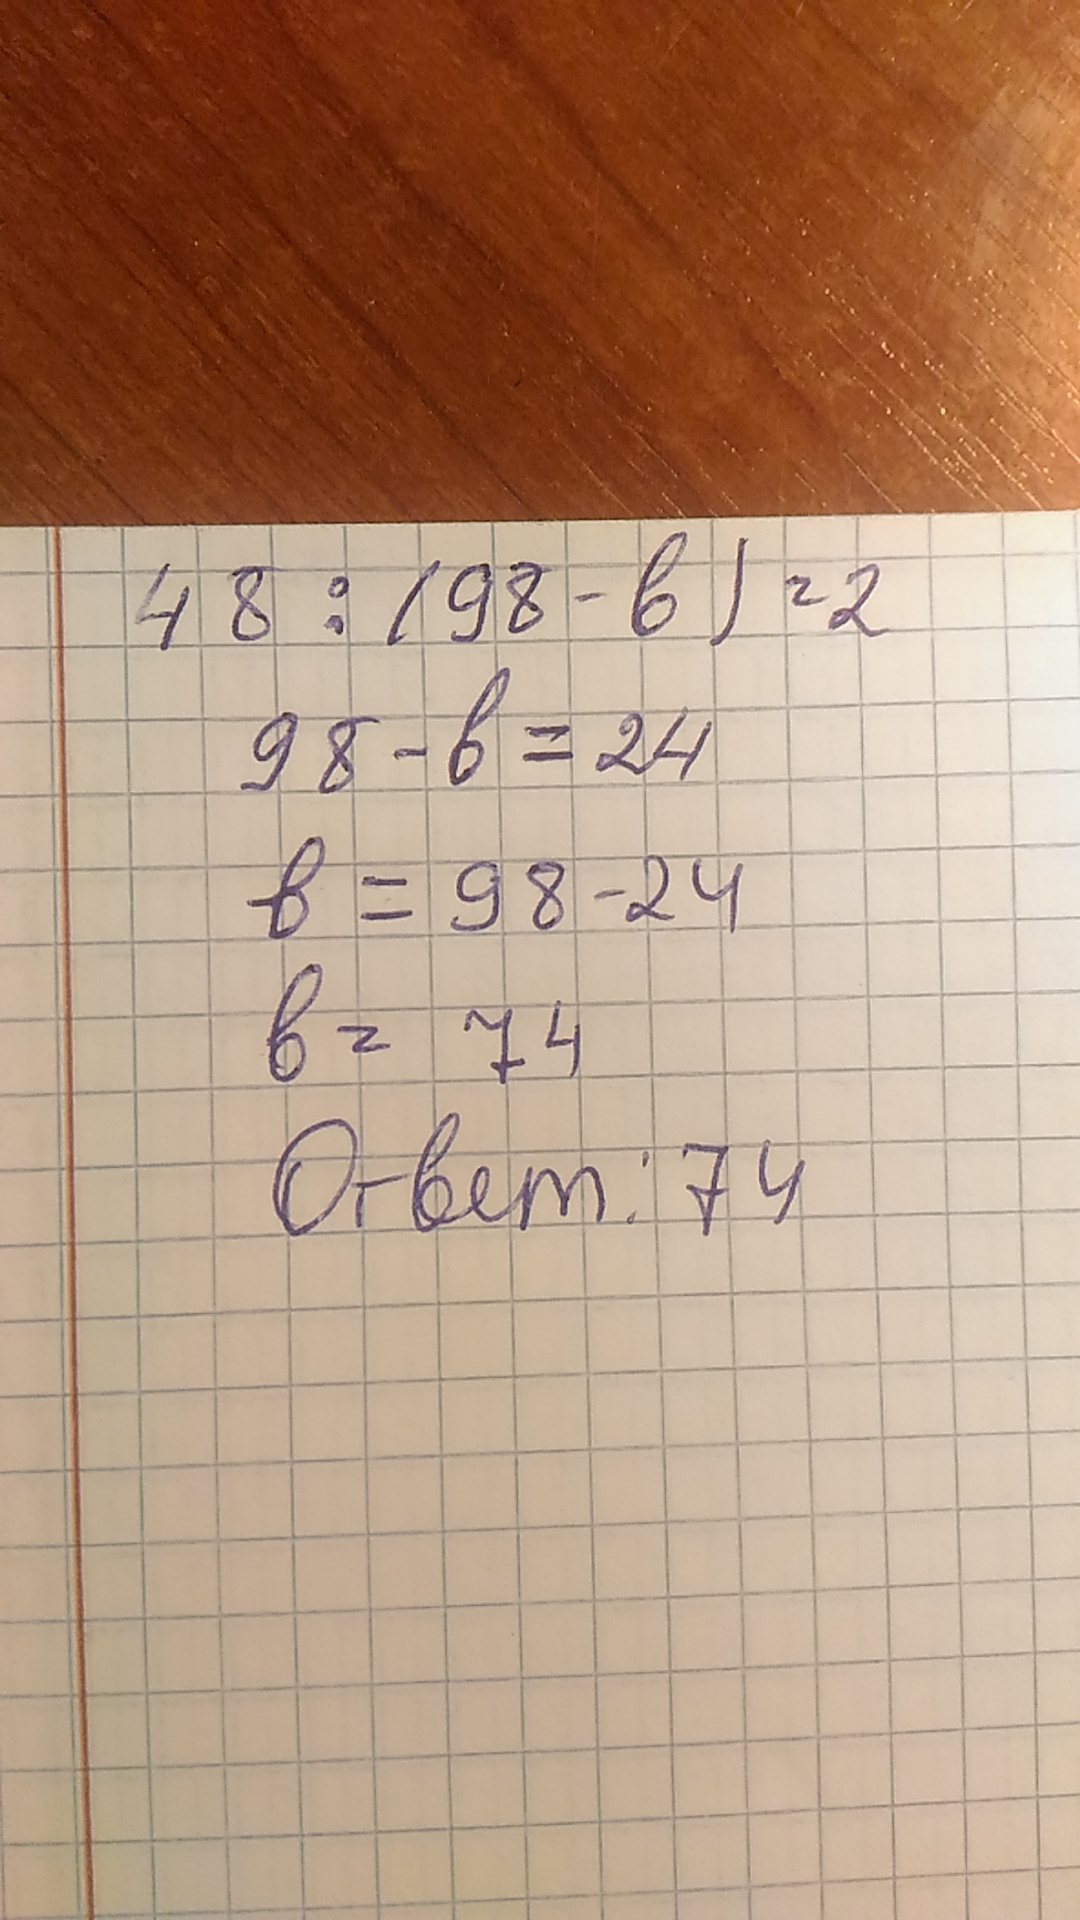 48 : (98 - в) = 2
98 - в = 24
в = 98 - 24
в = 74
Ответ: 74